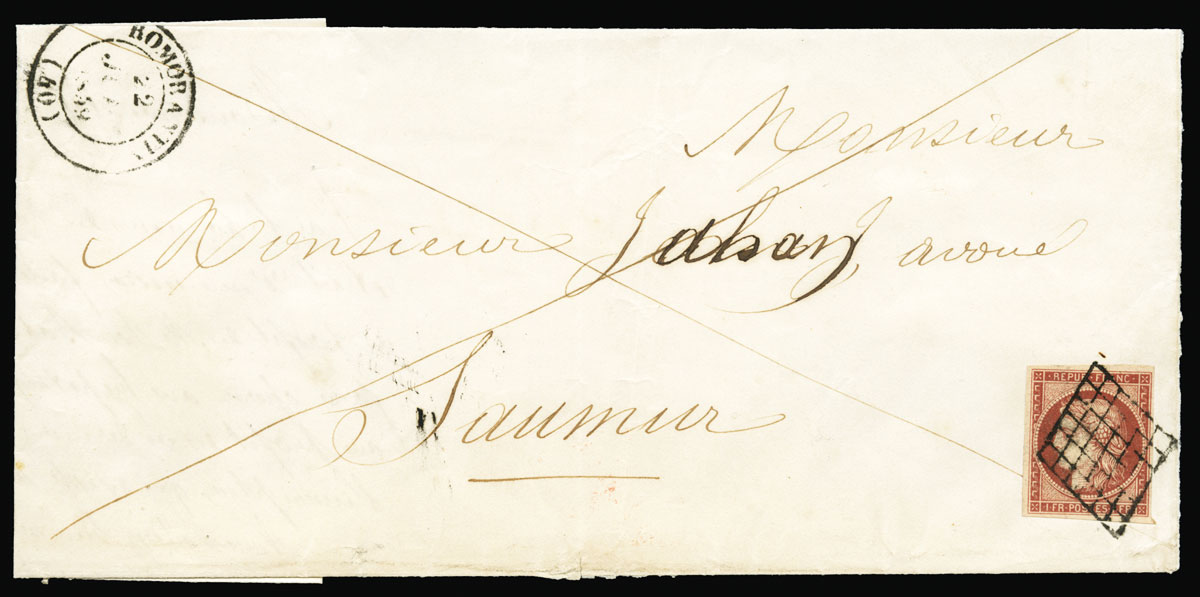 ROMORANTIN
22
1849
(40)
Monsieur
Monsieur Jahan, avoué
Saumur
REPUB. FRANC.
1 FR · POSTES · 1 FR